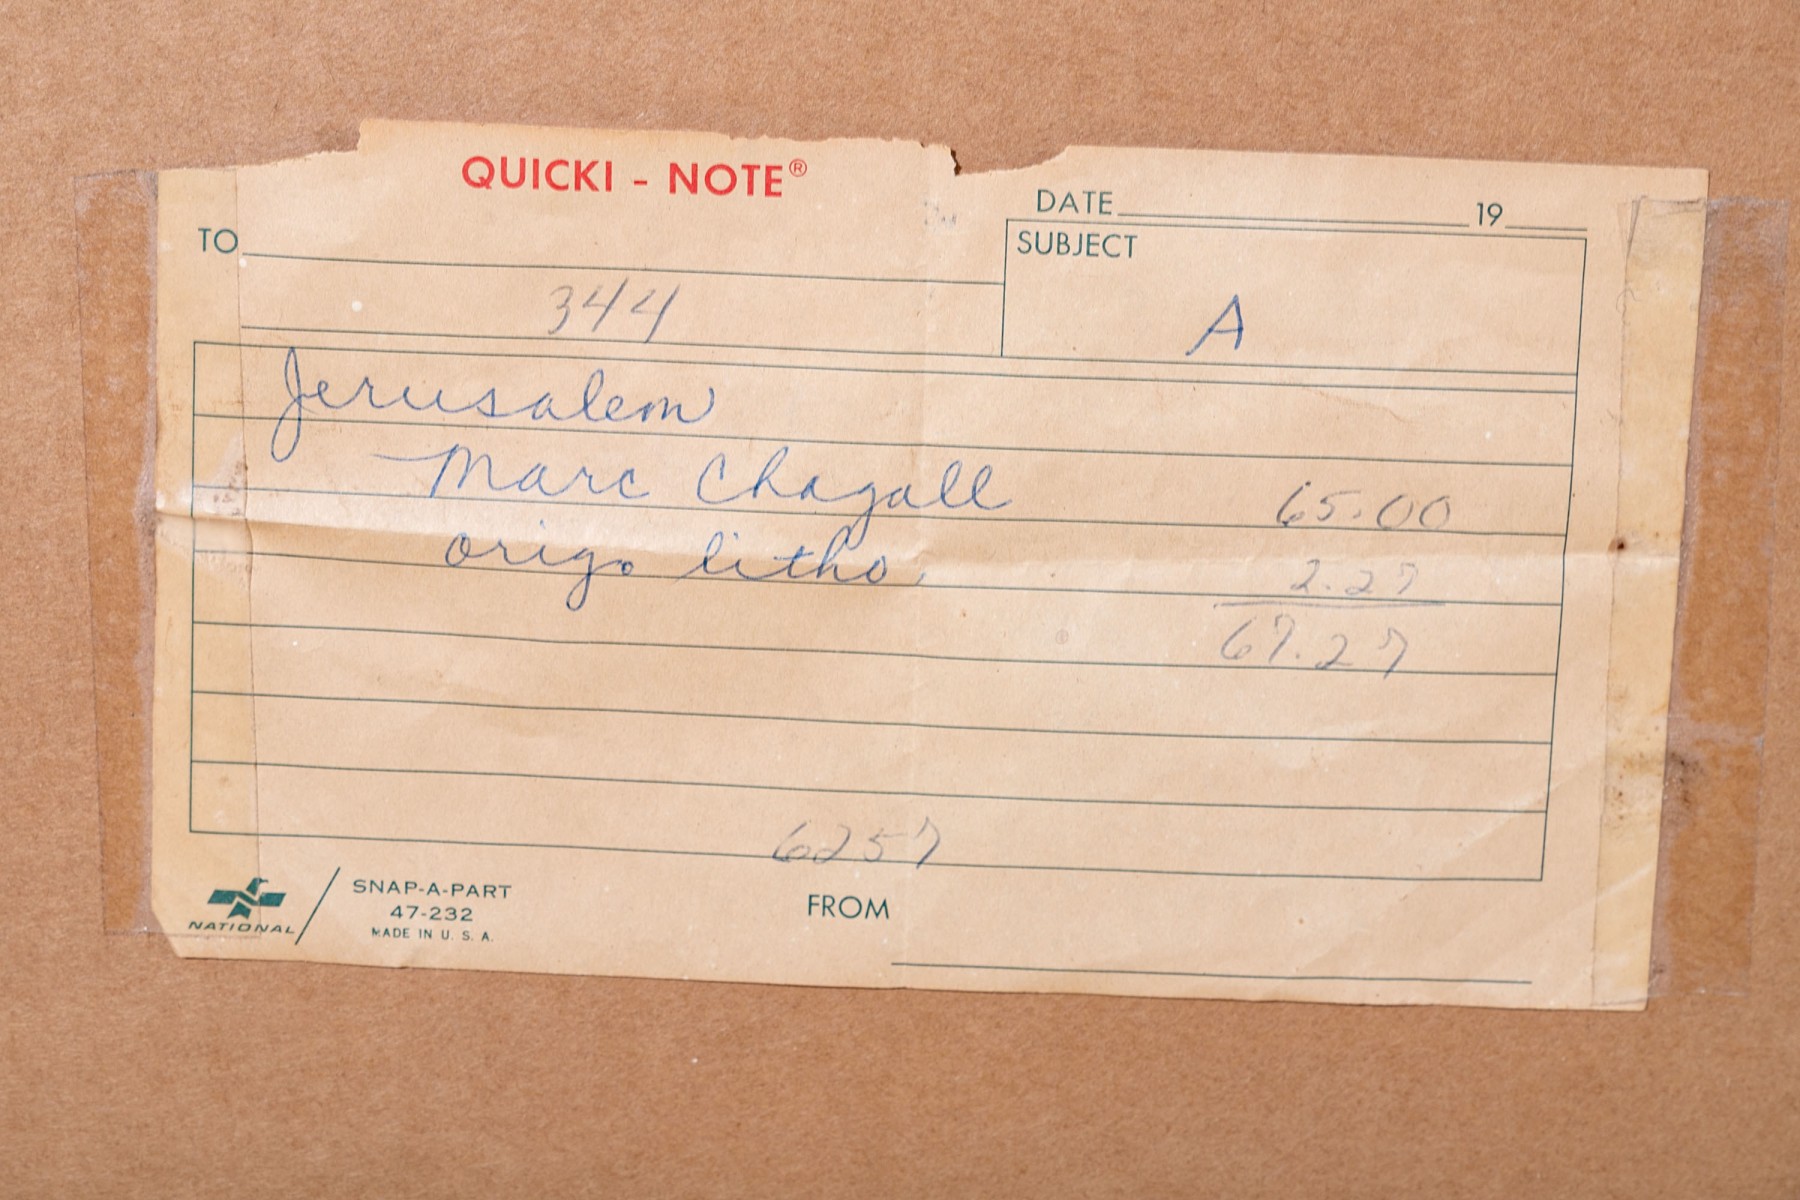 QUICKI - NOTE®
DATE 19
TO
SUBJECT
344
A
Jerusalem
Marc Chagall 65.00
orig. litho. 2.27
67.27
6257
NATIONAL
SNAP-A-PART
47-232
MADE IN U. S. A.
FROM